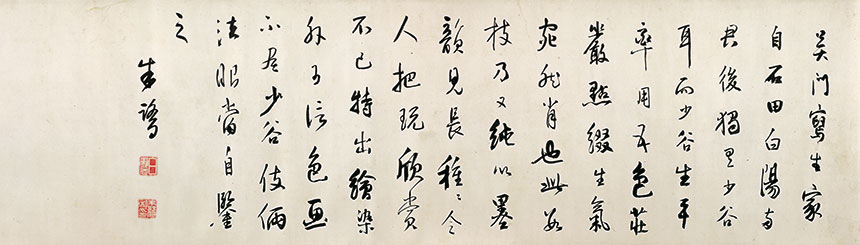 吳門寫生家
自石田白陽兩
君後獨見少谷
耳而少谷生平
率用五色莊
嚴點綴生氣
宛然肖也此數
枝乃又純以墨
韻見長種種令
人把玩欣賞
不已特出繪染
外可信色畫
不盡少谷伎倆
法眼當自鑒
之
朱鷺